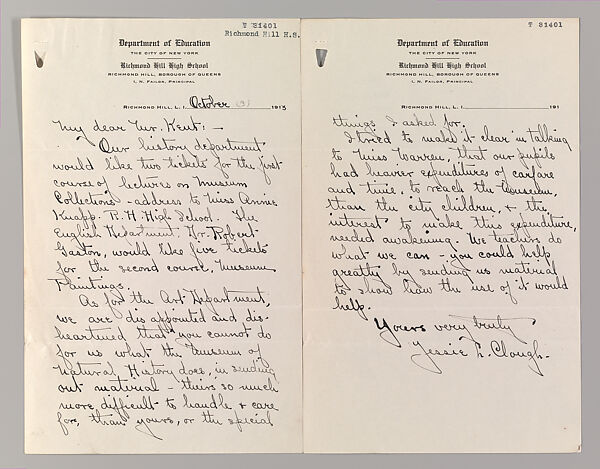 T 31401
Richmond Hill H.S.
Department of Education
THE CITY OF NEW YORK
Richmond Hill High School
RICHMOND HILL, BOROUGH OF QUEENS
I. N. FAILOR, PRINCIPAL
RICHMOND HILL, L. I. October 1913
My dear Mr. Kent: —
Our history department
would like two tickets for the first
course of lectures on Museum
Collections - address to Miss Annie
Knapp. R. H. High School. The
English Department, Mr. Robert
Gaston, would like five tickets
for the second course, Museum
Paintings.
As for the Art Department,
we are disappointed and dis-
heartened that you cannot do
for us what the Museum of
Natural History does, in sending
out material - theirs so much
more difficult to handle & care
for, than yours, or the special
T 31401
Department of Education
THE CITY OF NEW YORK
Richmond Hill High School
RICHMOND HILL, BOROUGH OF QUEENS
I. N. FAILOR, PRINCIPAL
RICHMOND HILL, L. I. 191
things I asked for.
I tried to make it clear in talking
to Miss Warren, that our pupils
had heavier expenditures of carfare
and time, to reach the Museum,
than the city children, & the
interest to make this expenditure,
needed awakening. We teachers do
what we can - you could help
greatly by sending us material
to show how the use of it would
help.
Yours very truly
Jessie L. Clough.